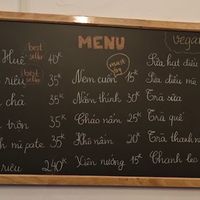 MENU
Vegan
Huế best seller 40K
riêu best seller 35K
chả 35K
trộn 35K
mì pate 35K
riêu 240K
must try
Nem cuốn 15K
Nấm thính 30K
Cháo nấm 25K
Khô nấm 20K
Xiên nướng 15K
Sữa hạt điều
Sữa điều mè
Trà sữa
Trà quế
Trà thanh
Chanh leo